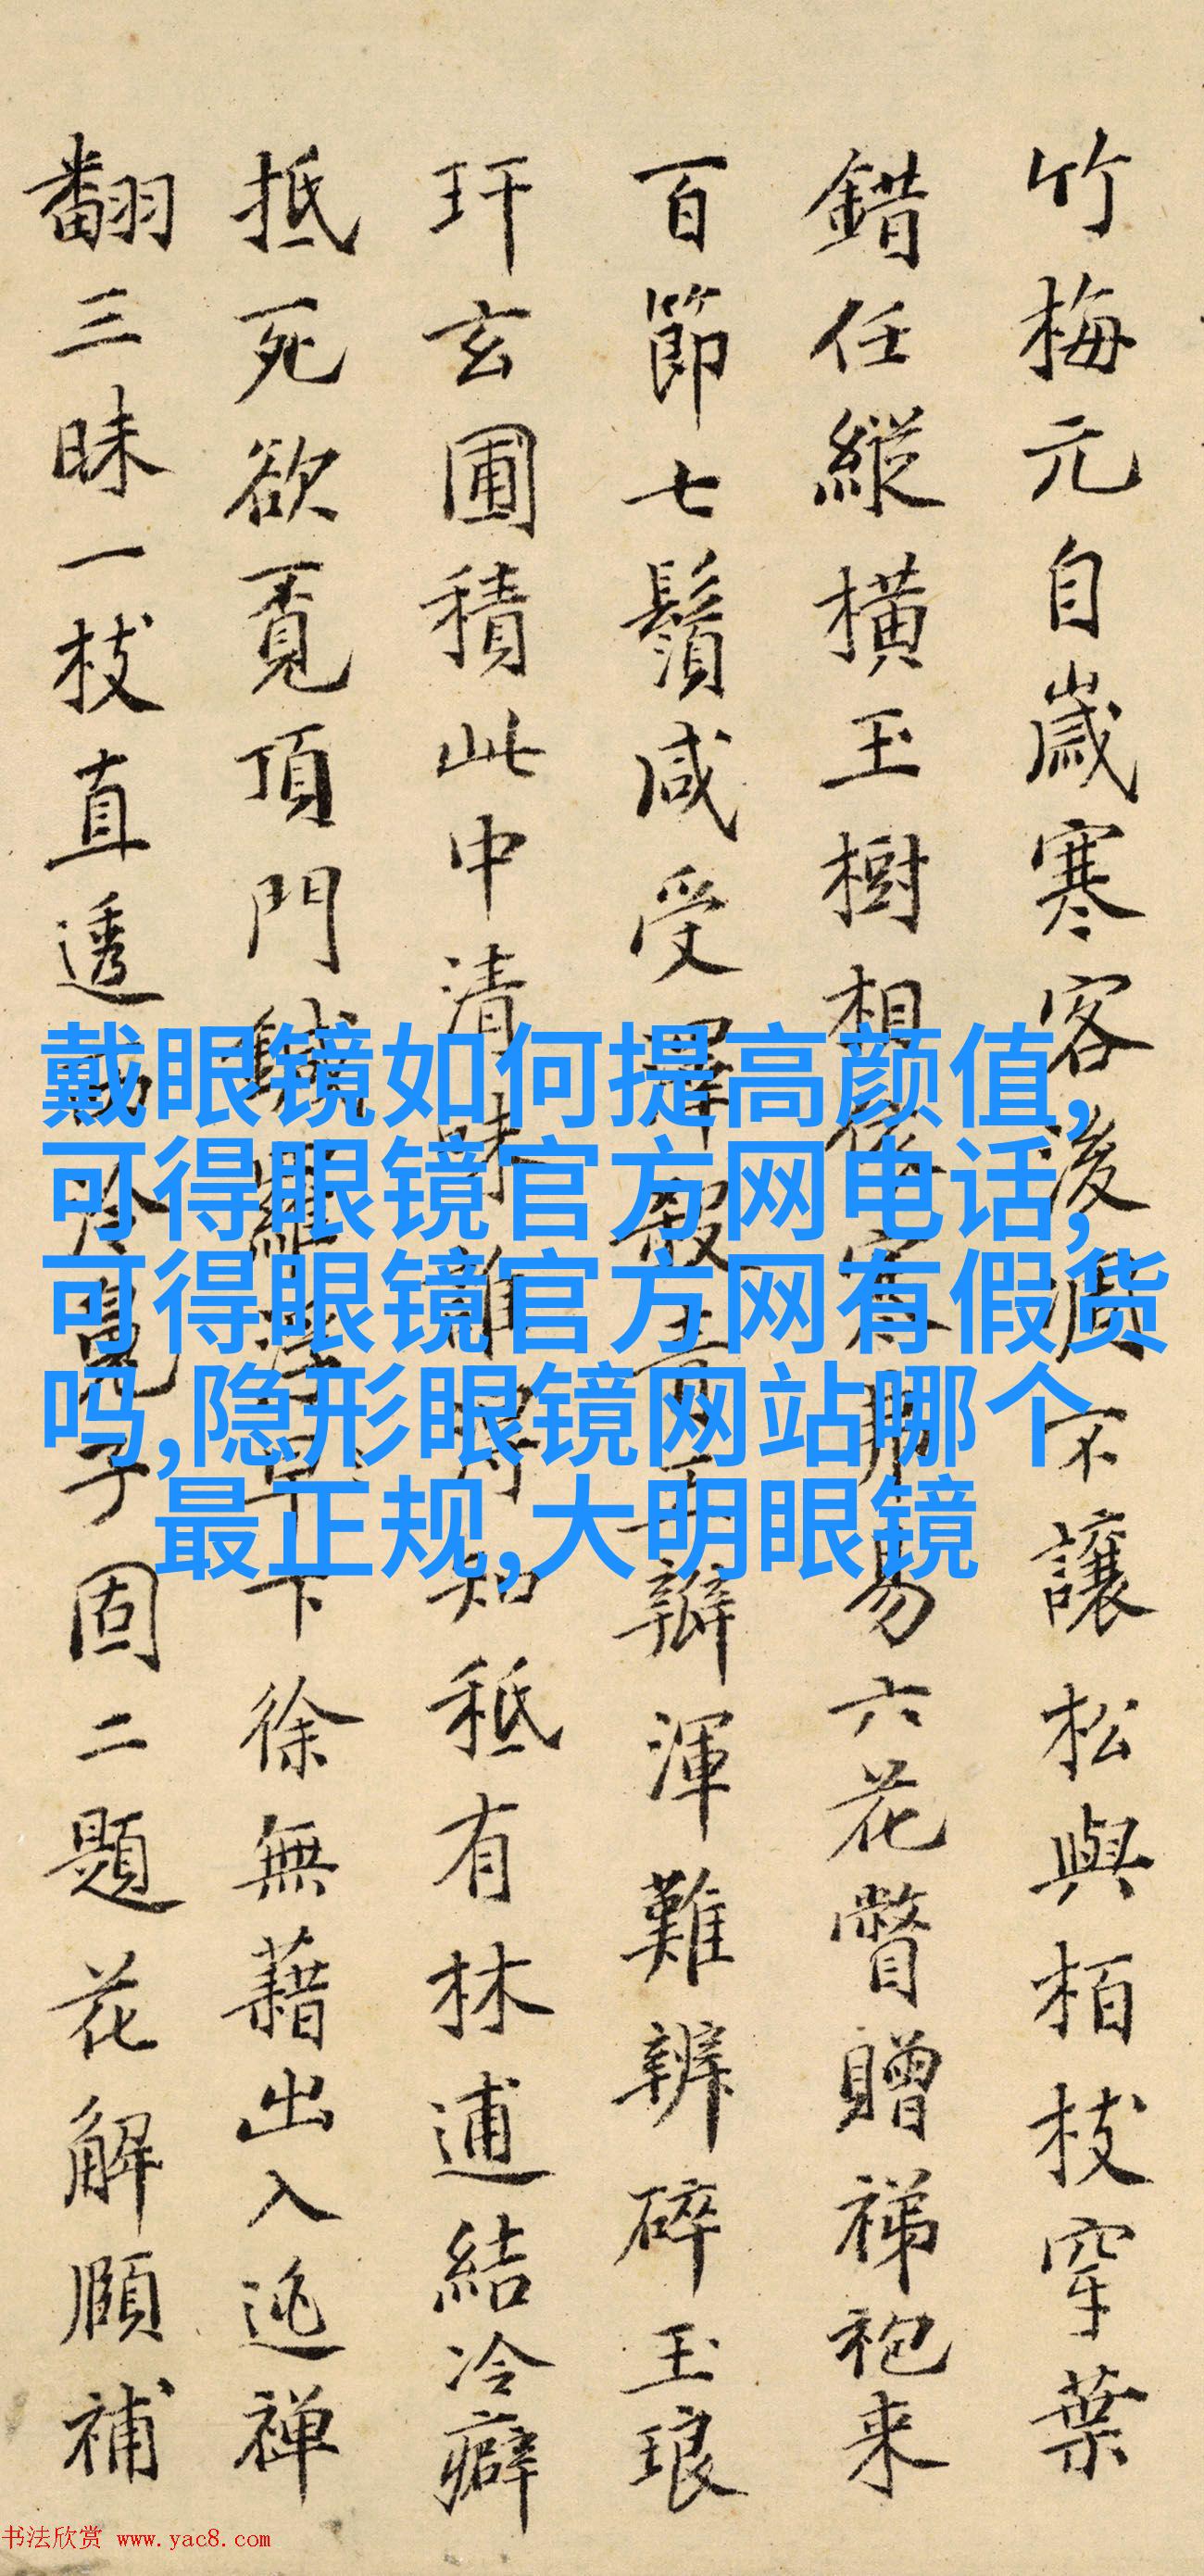 竹梅元自歲寒客後凋不讓松與栢枝穿葉
錯任縱橫玉樹相依寒易六花瞥贈祶袍来
百節七鬚咸受瓣渾難辨碎玉琅
玕玄圃積此中清味難得知秪有林逋結冷癖
抵死欲覔頂門下徐無藉出入逃禅
翻三昧一枝直透子固二題花解頤補
戴眼镜如何提高颜值,
可得眼镜官方网电话,
可得眼镜官方网有假货
吗,隐形眼镜网站哪个
最正规,大明眼镜
书法欣赏 www.yac8.com